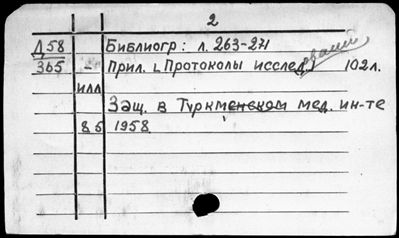 2
Д58 Библиогр: л. 263-271
365 - Прил. [Протоколы исследований] 102л.
илл
Защ. в Туркменском мед. ин-те
85 1958